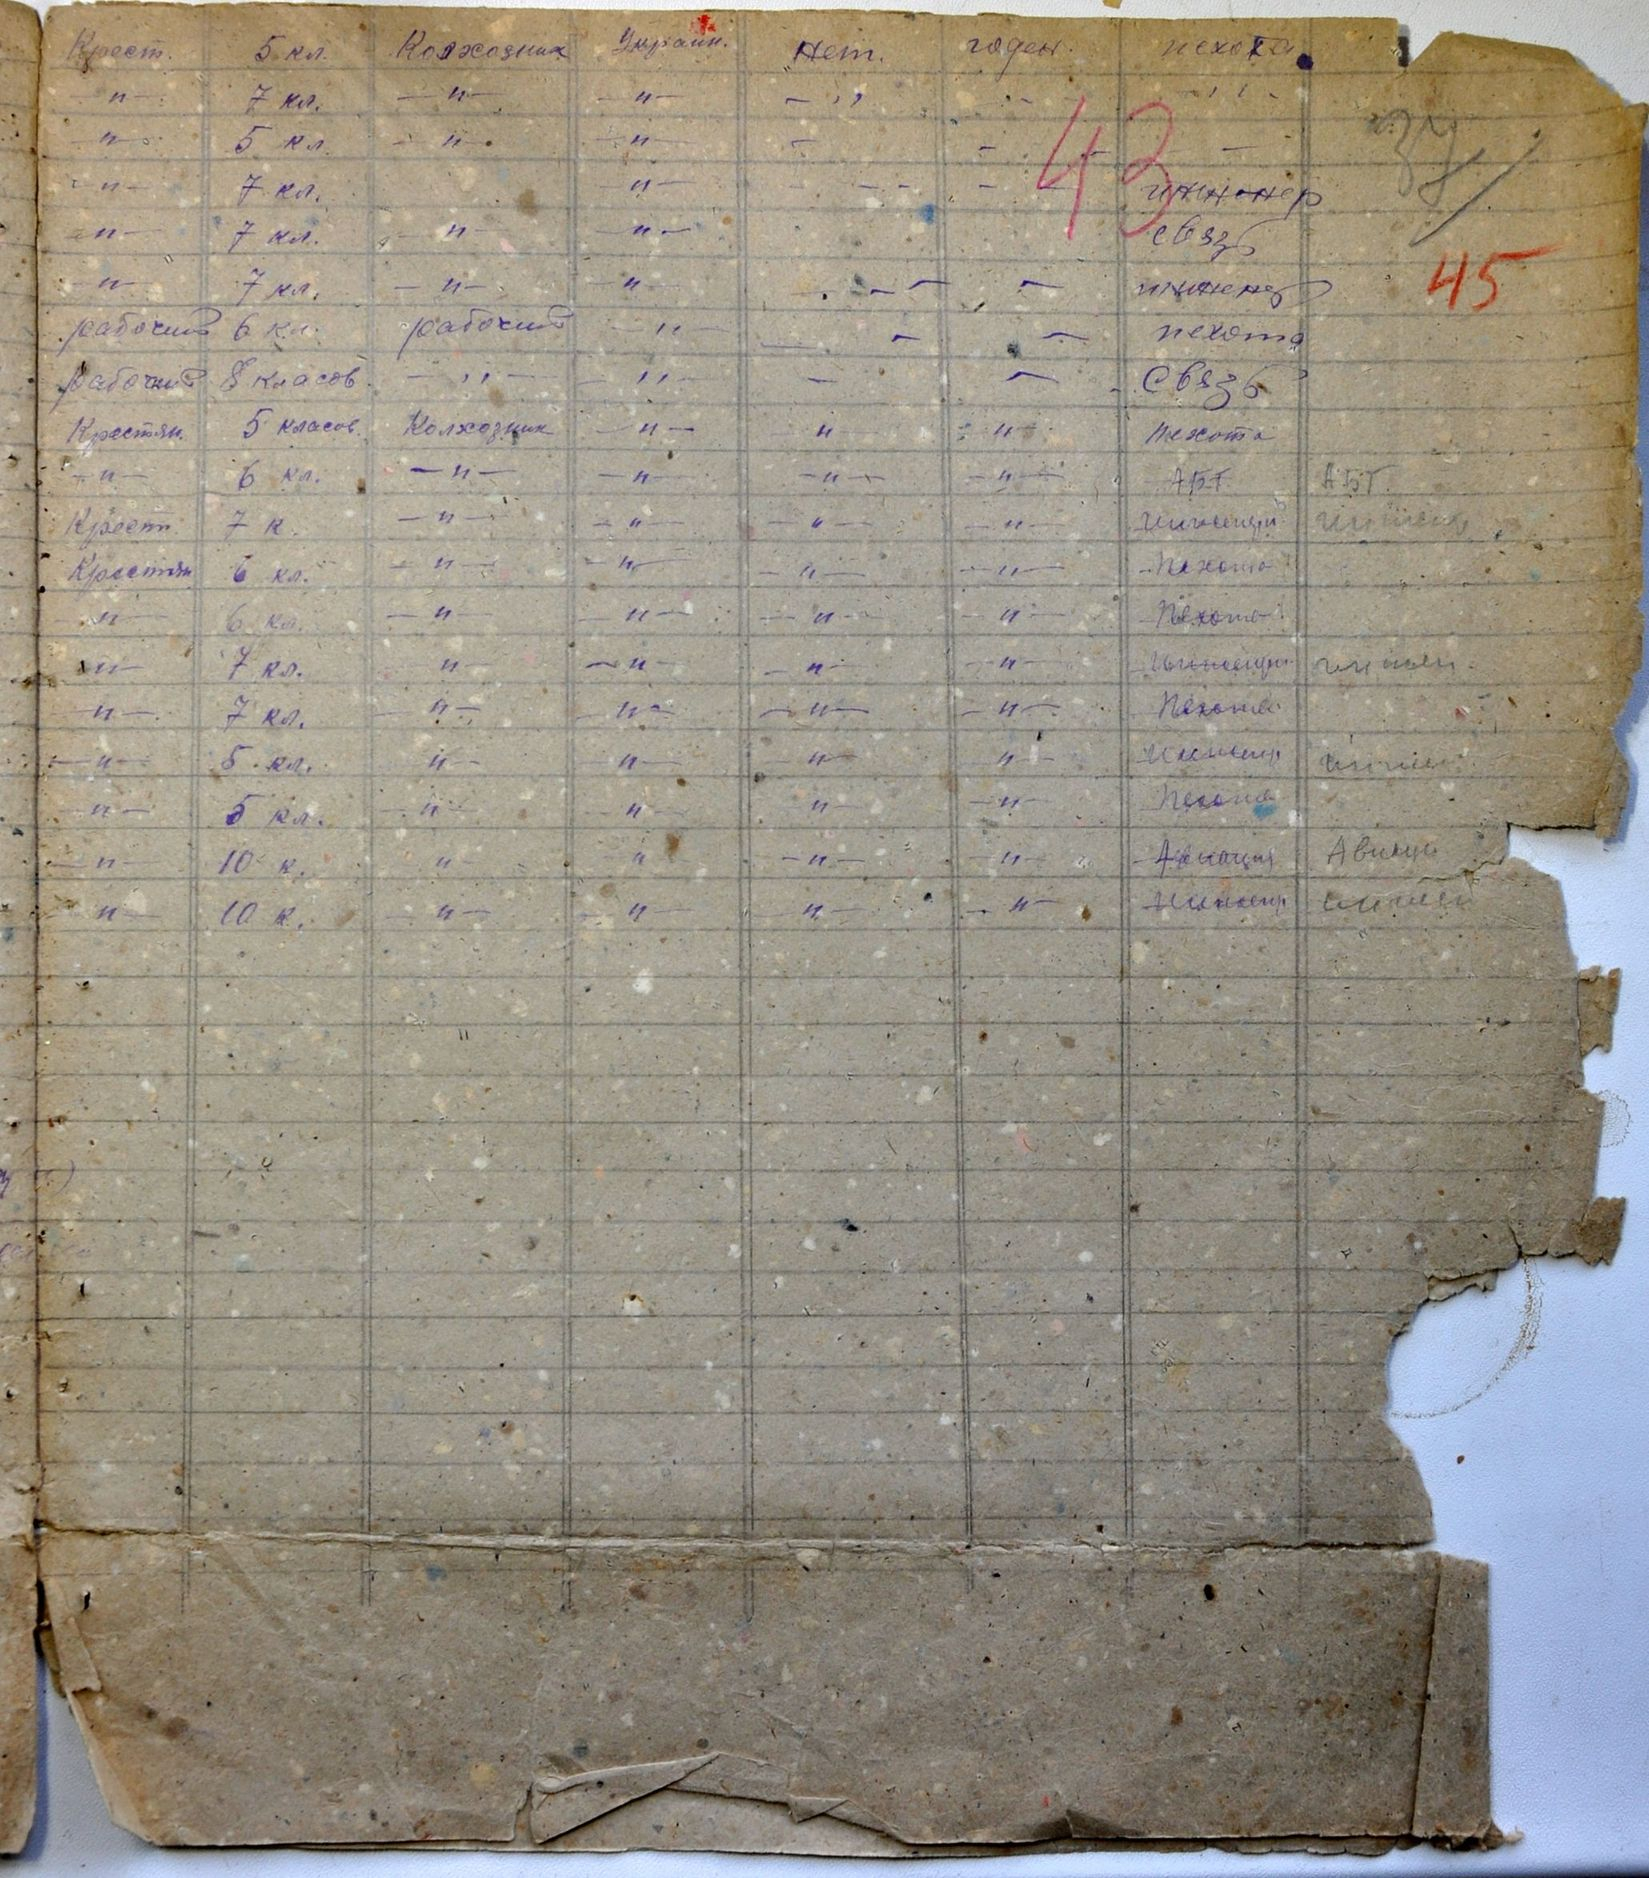 Крест. 5 кл. Колхозник Украин. Нет. годен. пехота
—"— 7 кл. —"— —"— — ,, — ,, —
—"— 5 кл. —"— —"— — — — —
—"— 7 кл. —"— — — — инженер
—"— 7 кл. —"— —"— связь
—"— 7 кл. —"— —"— — — — инженер
рабочий 6 кл. рабочий —"— — — — пехота
рабочий 8 класов —"— —"— — — связь
Крестян. 5 класов. Колхозник —"— —"— —"— пехота
—"— 6 кл. —"— —"— —"— —"— АБТ. АБТ.
Крест 7 к. —"— —"— —"— —"—
Крестян 6 кл. —"— —"— —"— —"— Пехота
—"— 6 кл. —"— —"— —"— —"— Пехота
—"— 7 кл. —"— —"— —"— —"—
—"— 7 кл. —"— —"— —"— —"— Пехота
—"— 5 кл. —"— —"— —"— —"—
—"— 5 кл. —"— —"— —"— —"— Пехота
—"— 10 к. —"— —"— —"— —"— Авиация Авиаци
—"— 10 к. —"— —"— —"— —"—
43
45